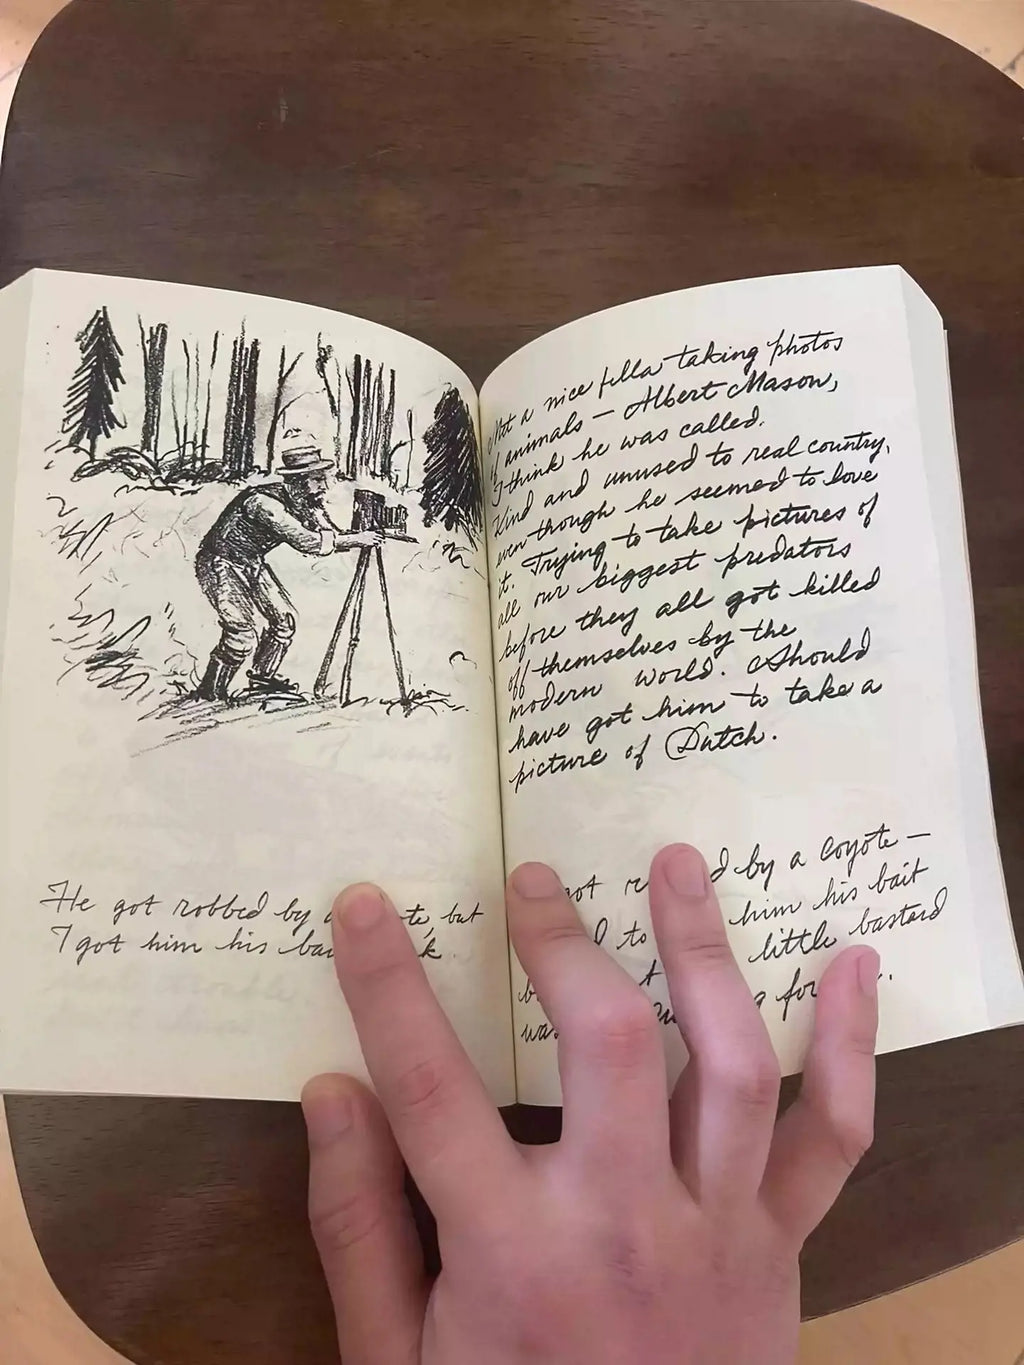 He got robbed by a te, but
I got him his ba k.
Met a nice fella taking photos
of animals – Albert Mason,
I think he was called.
Kind and unused to real country,
even though he seemed to love
it. Trying to take pictures of
all our biggest predators
before they all got killed
off themselves by the
modern world. Should
have got him to take a
picture of Dutch.
got by a coyote –
to him his bait
little bastard
was for